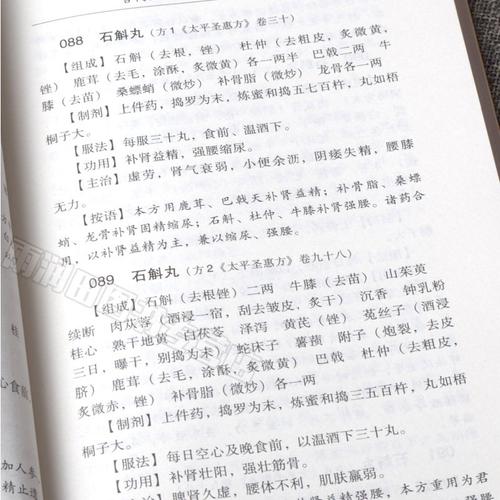 088 石斛丸（方1《太平圣惠方》卷三十）
【组成】石斛（去根，锉） 杜仲（去粗皮，炙微黄，
锉） 鹿茸（去毛，涂酥，炙微黄）各一两半 巴戟二两 牛
膝（去苗） 桑螵蛸（微炒） 补骨脂（微炒） 龙骨各一两
【制剂】上件药，捣罗为末，炼蜜和捣五七百杵，丸如梧
桐子大。
【服法】每服三十丸，食前、温酒下。
【功用】补肾益精，强腰缩尿。
【主治】虚劳，肾气衰弱，小便余沥，阴痿失精，腰膝
无力。
【按语】本方用鹿茸、巴戟天补肾益精；补骨脂、桑螵
蛸、龙骨补肾固精缩尿；石斛、杜仲、牛膝补肾强腰。诸药合
用，以补肾益精为主，兼以缩尿、强腰。
089 石斛丸（方2《太平圣惠方》卷九十八）
【组成】石斛（去根锉）二两 牛膝（去苗） 山茱萸
续断 肉苁蓉（酒浸一宿，刮去皱皮，炙干） 沉香 钟乳粉
桂心 熟干地黄 白茯苓 泽泻 黄芪（锉） 菟丝子（酒浸
三日，曝干，别捣为末） 蛇床子 薯蓣 附子（炮裂，去皮
脐） 鹿茸（去毛，涂酥，炙微黄） 巴戟 杜仲（去粗皮，
炙微赤，锉） 补骨脂（微炒）各一两
【制剂】上件药，捣罗为末，炼蜜和捣三五百杵，丸如梧
桐子大。
【服法】每日空心及晚食前，以温酒下三十丸。
【功用】补肾壮阳，强壮筋骨。
【主治】脾肾久虚，腰体不利，肌肤羸弱。
鹿茸、附子补肾益精，本方重用为君
桂
心食前
加人参
精止遗
091